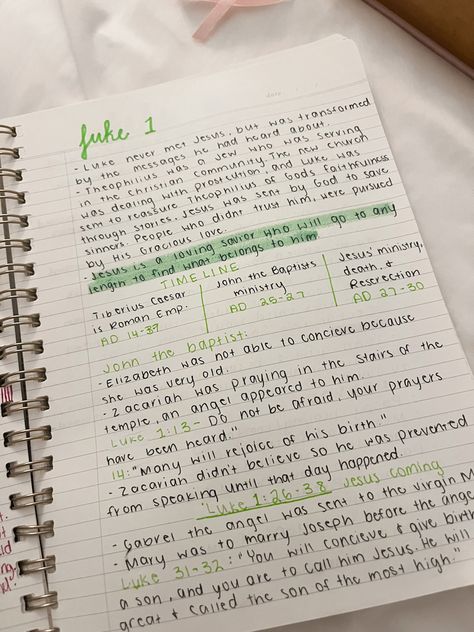 Luke 1
- Luke never met Jesus, but was transformed
by the messages he had heard about.
- Theophilius was a Jew who was serving
in the Christian community. The new church
was dealing with prosecution, and Luke was
sent to reassure Theophilius of Gods faithfulness
through stories. Jesus was sent by God to save
sinners. People who didnt trust him, were pursued
by His Gracious love.
- Jesus is a loving savior who will go to any
length to find what belongs to him.
TIMELINE
Tiberius Caesar
is Roman Emp.
AD 14-37
John the Baptists
ministry
AD 25-27
Jesus' ministry,
death, &
Reserection
AD 27-30
John the baptist:
- Elizabeth was not able to concieve because
she was very old.
- Zacariah was praying in the stairs of the
temple, an angel appeared to him.
Luke 1:13- Do not be afraid, your prayers
have been heard."
14: "Many will rejoice of his birth."
- Zacariah didn't believe so he was prevented
from speaking until that day happened.
Luke 1:26-38 Jesus coming
- Gabrel the angel was sent to the virgin
- Mary was to marry Joseph before the
Luke 31-32: "You will concieve & give birth
a son, and you are to call him Jesus. He will
great & called the son of the most high."